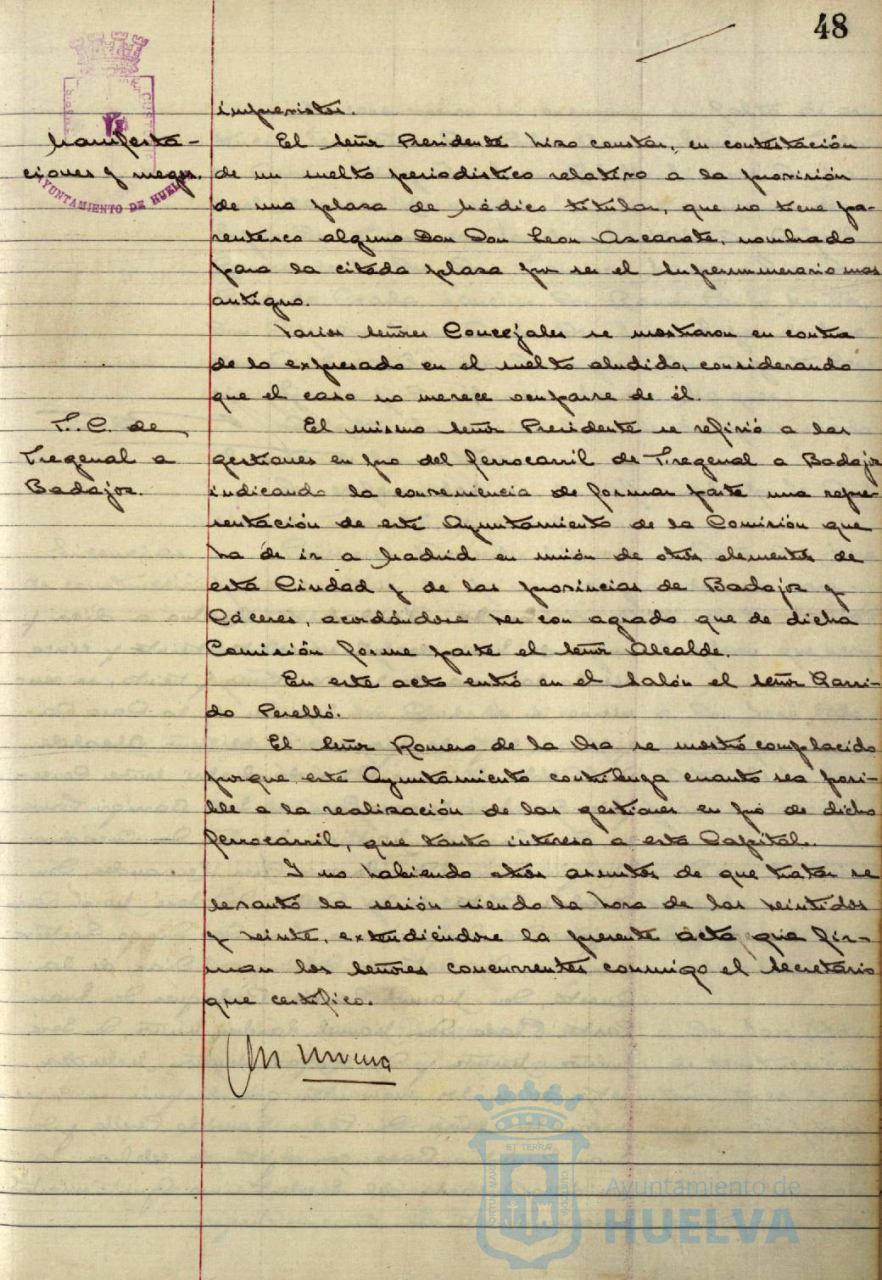 48
imprevistos.
Manifesta-
ciones y ruegos.
AYUNTAMIENTO DE HUELVA
El Señor Presidente hizo constar, en contestación
de un suelto periodístico relativo a la provisión
de una plaza de Médico titular, que no tiene pa-
rentesco alguno Don Don Leon Ascarate, nombrado
para la citada plaza por ser el Supernumerario mas
antiguo.
Varios Señores Concejales se mostraron en contra
de lo expresado en el suelto aludido, considerando
que el caso no merece ocuparse de él.
F. C. de
Fregenal a
Badajoz.
El mismo Señor Presidente se refirió a las
gestiones en pro del ferrocarril de Fregenal a Badajoz
indicando la conveniencia de formar parte una repre-
sentación de este Ayuntamiento de la Comisión que
ha de ir a Madrid en unión de otros elementos de
esta Ciudad y de las provincias de Badajoz y
Cáceres, acordándose ver con agrado que de dicha
Comisión forme parte el Señor Alcalde.
En este acto entró en el Salón el Señor Garri-
do Perelló.
El Señor Romero de la Osa se mostró complacido
porque este Ayuntamiento contribuya cuanto sea posi-
ble a la realización de las gestiones en pró de dicho
ferrocarril, que tanto interesa a esta Capital.
Y no habiendo otros asuntos de que tratar se
levantó la sesión siendo la hora de las veintidos
y veinte, extendiéndose la presente acta que fir-
man los Señores concurrentes conmigo el Secretario
que certifico.
Ayuntamiento de
HUELVA